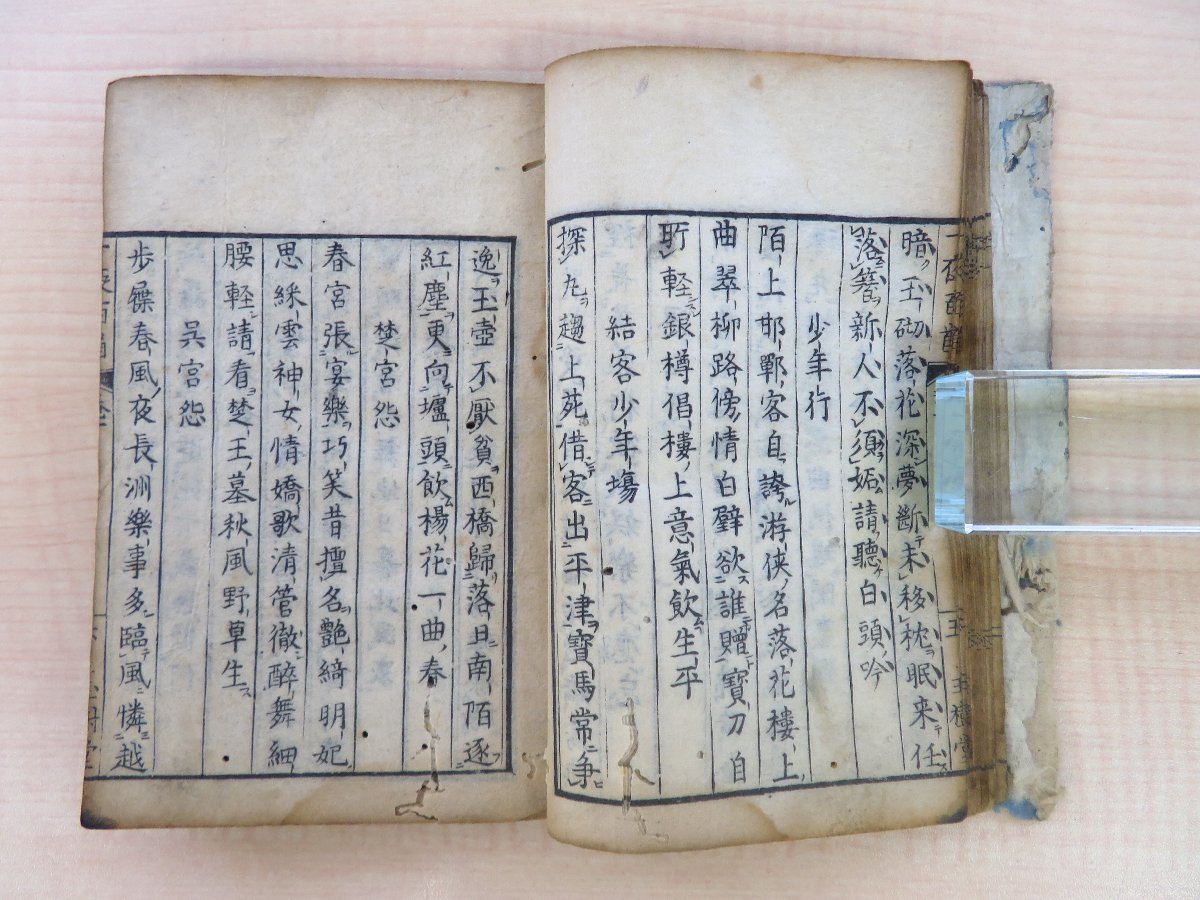 暗玉砌落花深夢斷未移枕眠来任
落簪新人不須妬請聽白頭吟
少年行
陌上邯鄲客自誇游侠名落花樓上
曲翠柳路傍情白璧欲誰贈寶刀自
軽銀樽倡樓上意氣飲生平
結客少年場
探丸趨上苑借客出平津寶馬常争
逸玉壺不厭貧西橋歸落日南陌逐
紅塵更向壚頭飲楊花一曲春
楚宮怨
春宮張宴樂巧笑昔擅名艶綺明妃
思綵雲神女情嬌歌清管徹醉舞細
腰軽請看楚王墓秋風野草生
呉宮怨
步屧春風夜長洲樂事多臨風憐越